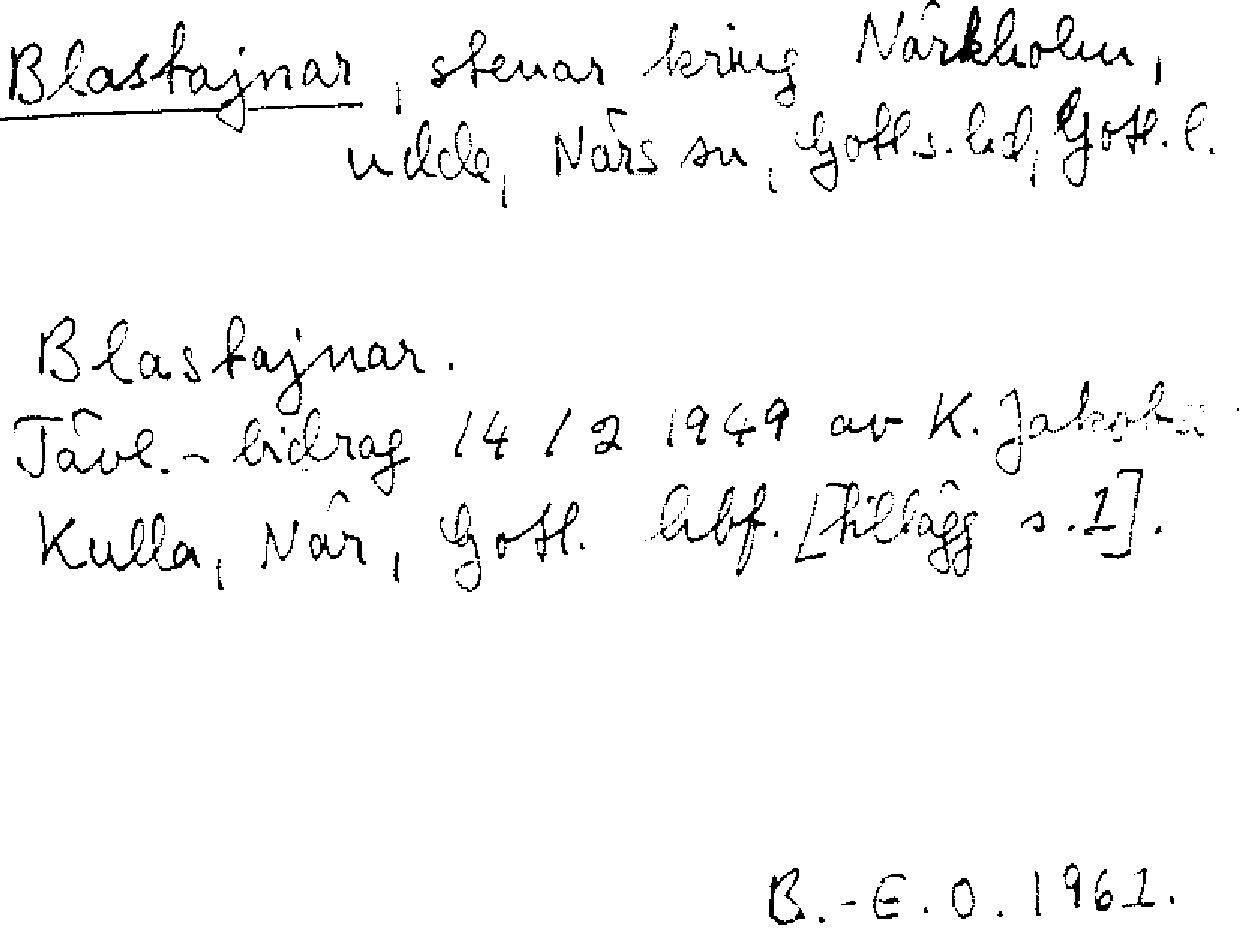 Blastajnar, stenar kring Närkholm,
udde, Närs sn, Gotl.s.hd, Gotl.l.
Blastajnar.
Tävl.-bidrag 14/2 1949 av K. Jakobs
Kulla, När, Gotl. Ubf. [tillägg s.1].
B.-E.O. 1961.